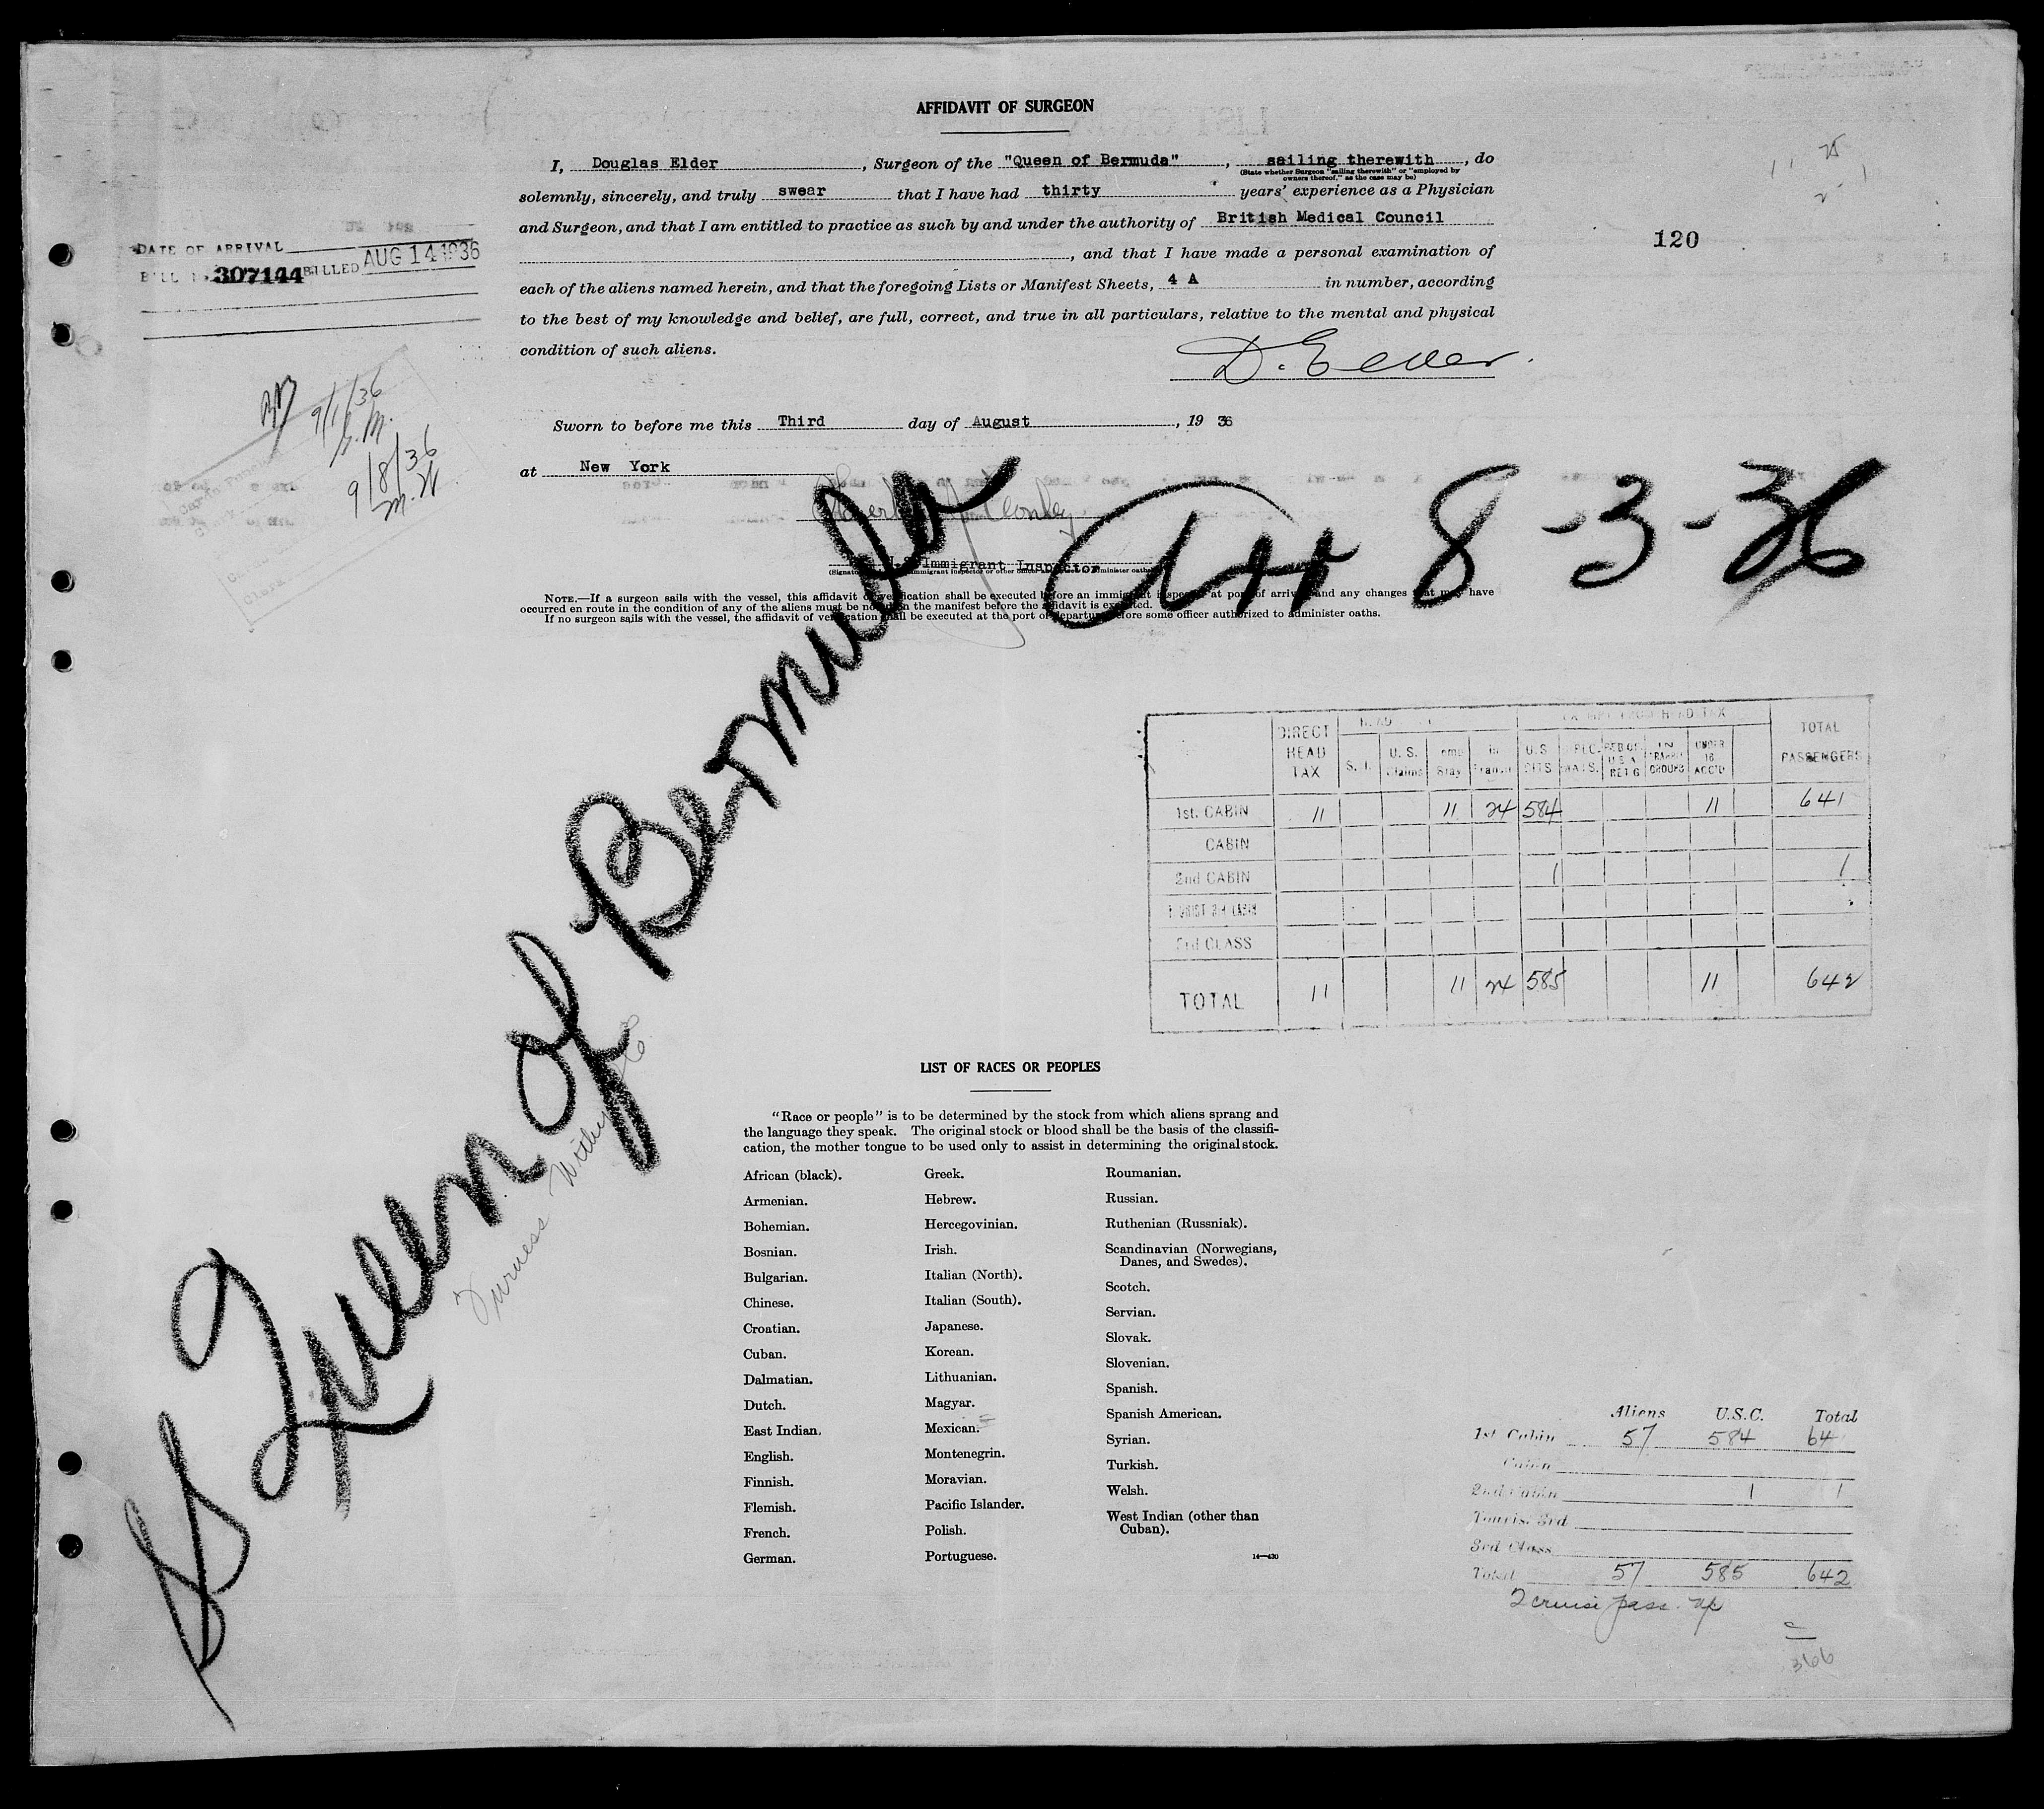 AFFIDAVIT OF SURGEON
I, Douglas Elder, Surgeon of the "Queen of Bermuda", sailing therewith, do
(State whether Surgeon "sailing therewith" or "employed by
owners thereof," as the case may be)
solemnly, sincerely, and truly swear that I have had thirty years' experience as a Physician
and Surgeon, and that I am entitled to practice as such by and under the authority of British Medical Council
, and that I have made a personal examination of
each of the aliens named herein, and that the foregoing Lists or Manifest Sheets, 4 A in number, according
to the best of my knowledge and belief, are full, correct, and true in all particulars, relative to the mental and physical
condition of such aliens.
D. Elder.
Sworn to before me this Third day of August, 19 36
at New York
Immigrant Inspector
NOTE.—If a surgeon sails with the vessel, this affidavit of verification shall be executed before an immigrant inspector at port of arrival and any changes that may have
occurred en route in the condition of any of the aliens must be noted on the manifest before the affidavit is executed.
If no surgeon sails with the vessel, the affidavit of verification shall be executed at the port of departure before some officer authorized to administer oaths.
DATE OF ARRIVAL
BILL No. 307144 BILLED AUG 14 1936
9/1/36
9/8/36
M.W
120
SS Queen of Bermuda
Arr 8-3-36
Furness Withy & Co
DIRECT HEAD TAX
HEAD
EXEMPT FROM HEAD TAX
TOTAL PASSENGERS
S. I.
U. S. Claims
Temp Stay
In Transit
U.S. CITS
IN TRANSIT GROUPS
UNDER 16 ACC'D
1st. CABIN 11 11 24 584 11 641
CABIN
2nd CABIN 1 1
TOURIST 3rd CABIN
3rd CLASS
TOTAL 11 11 24 585 11 642
LIST OF RACES OR PEOPLES
"Race or people" is to be determined by the stock from which aliens sprang and
the language they speak. The original stock or blood shall be the basis of the classifi-
cation, the mother tongue to be used only to assist in determining the original stock.
African (black).
Armenian.
Bohemian.
Bosnian.
Bulgarian.
Chinese.
Croatian.
Cuban.
Dalmatian.
Dutch.
East Indian.
English.
Finnish.
Flemish.
French.
German.
Greek.
Hebrew.
Hercegovinian.
Irish.
Italian (North).
Italian (South).
Japanese.
Korean.
Lithuanian.
Magyar.
Mexican.
Montenegrin.
Moravian.
Pacific Islander.
Polish.
Portuguese.
Roumanian.
Russian.
Ruthenian (Russniak).
Scandinavian (Norwegians,
Danes, and Swedes).
Scotch.
Servian.
Slovak.
Slovenian.
Spanish.
Spanish American.
Syrian.
Turkish.
Welsh.
West Indian (other than
Cuban).
14—430
Aliens U.S.C. Total
1st Cabin 57 584 641
Cabin
2nd Cabin 1 1
Tourist 3rd
3rd Class
Total 57 585 642
2 cruise pass.
366